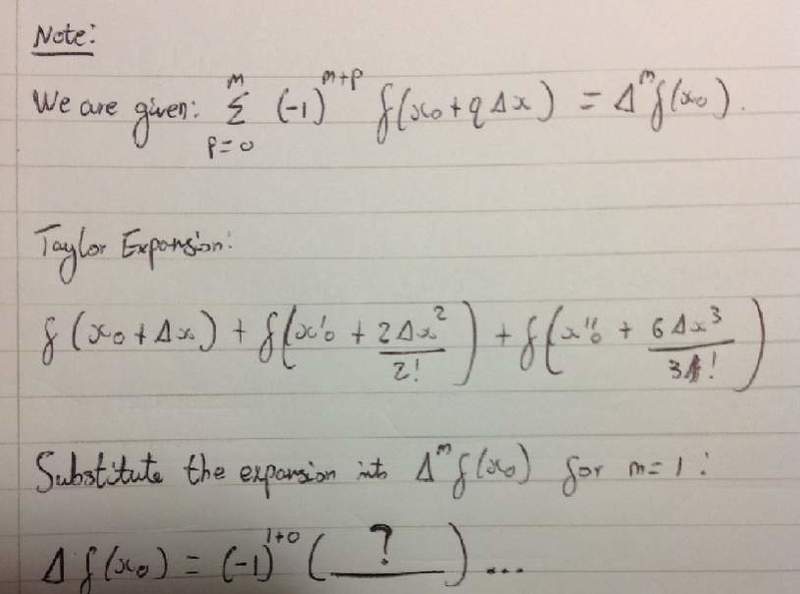 Note:
We are given: Σ_{p=0}^{m} (-1)^{m+p} f(x₀ + qΔx) = Δ^m f(x₀).
Taylor Expansion:
f(x₀ + Δx) + f(x'₀ + 2Δx²/2!) + f(x''₀ + 6Δx³/3!)
Substitute the expansion into Δ^m f(x₀) for m=1:
Δf(x₀) = (-1)^{1+0} ( ? ) ...